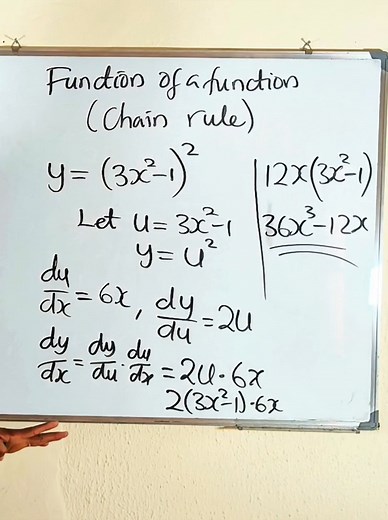 Function of a function
(Chain rule)
y = (3x²-1)²
Let u = 3x²-1
y = u²
du/dx = 6x, dy/du = 2u
dy/dx = dy/du · du/dx = 2u · 6x
2(3x²-1)·6x
12x(3x²-1)
36x³-12x